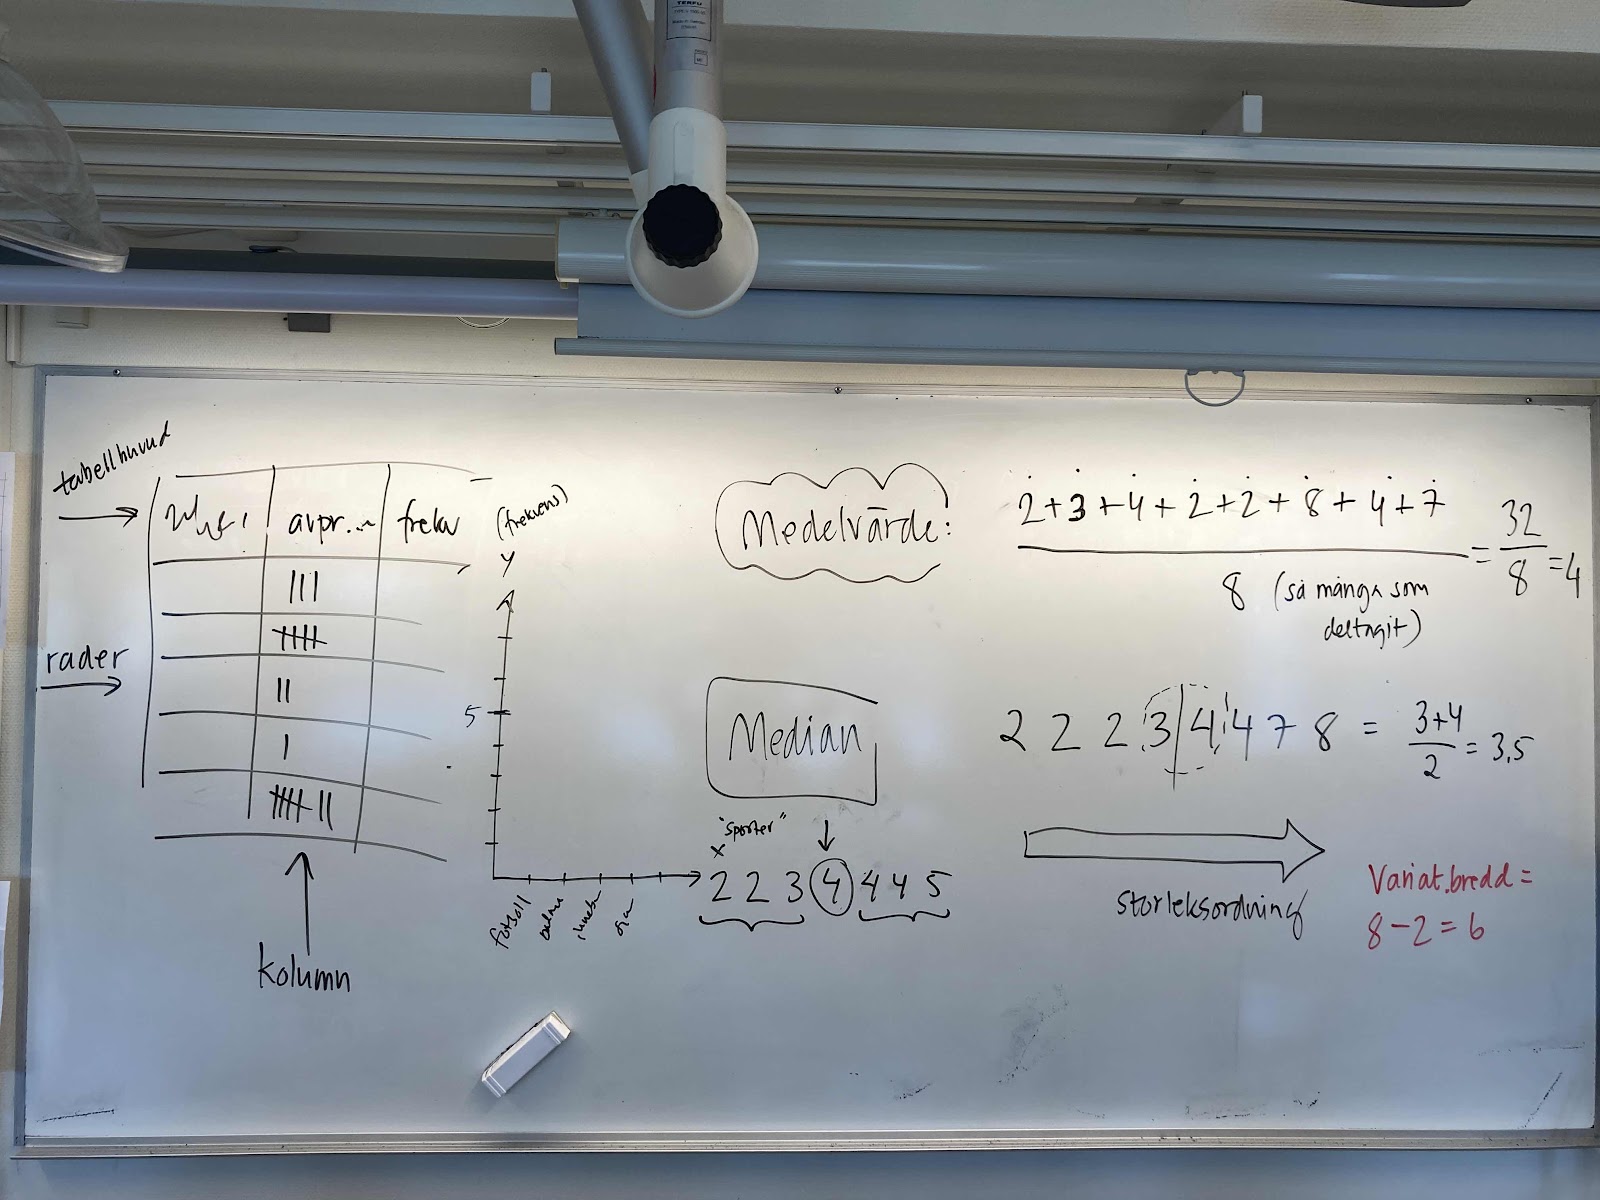 TERFU
tabellhuvud
avpr...
frekv
rader
kolumn
(frekvens)
y
5
fotboll
x "sporter"
Medelvärde:
2+3+4+2+2+8+4+7
8 (så många som
deltagit)
= 32/8 = 4
Median
2 2 2 3 4 4 7 8 = 3+4/2 = 3,5
2 2 3 4 4 4 5
storleksordning
Variat.bredd =
8-2=6